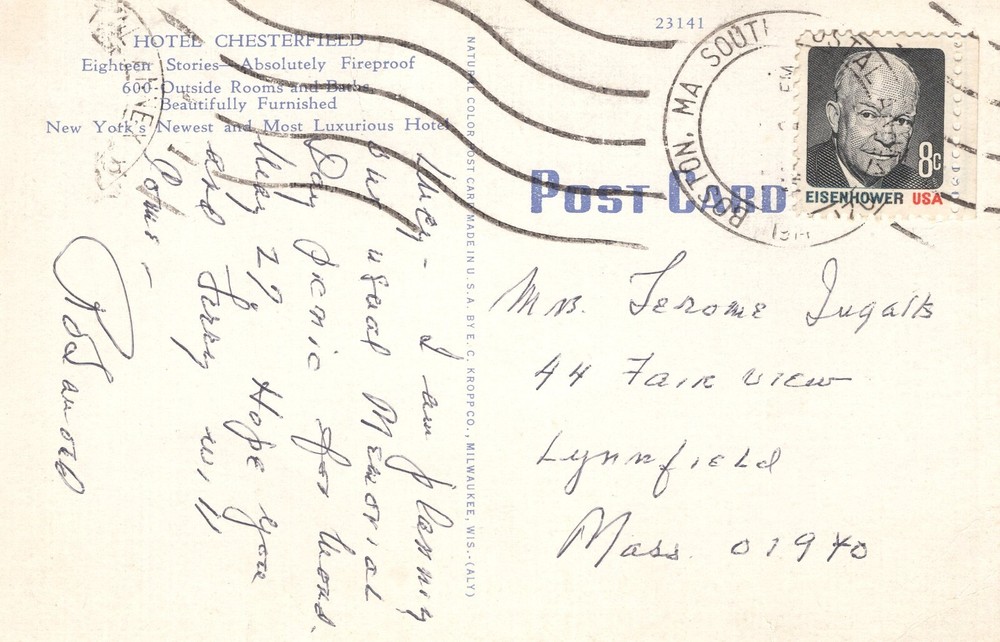 HOTEL CHESTERFIELD
Eighteen Stories—Absolutely Fireproof
600-Outside Rooms and Baths
Beautifully Furnished
New York's Newest and Most Luxurious Hotel
23141
NATURAL COLOR POST CARD MADE IN U.S.A. BY E. C. KROPP CO., MILWAUKEE, WIS.-(ALY)
POST CARD
BOSTON, MA
8c
EISENHOWER USA
I am planning
our usual Memorial
Day picnic for Mond.
May 27 Hope you
and Jerry will
come -
Mrs. Jerome Ingalls
44 Fair view
Lynnfield
Mass. 01940